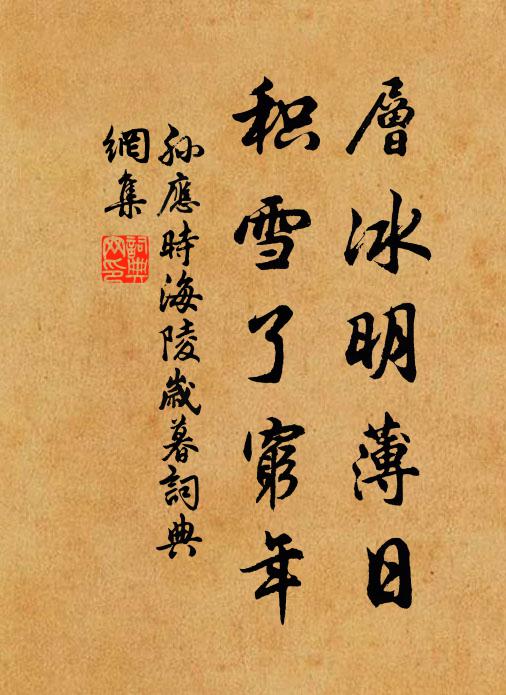 層冰明薄日
积雪了窮年
孙應時海陵歲暮詞典
網集
詞典
网印